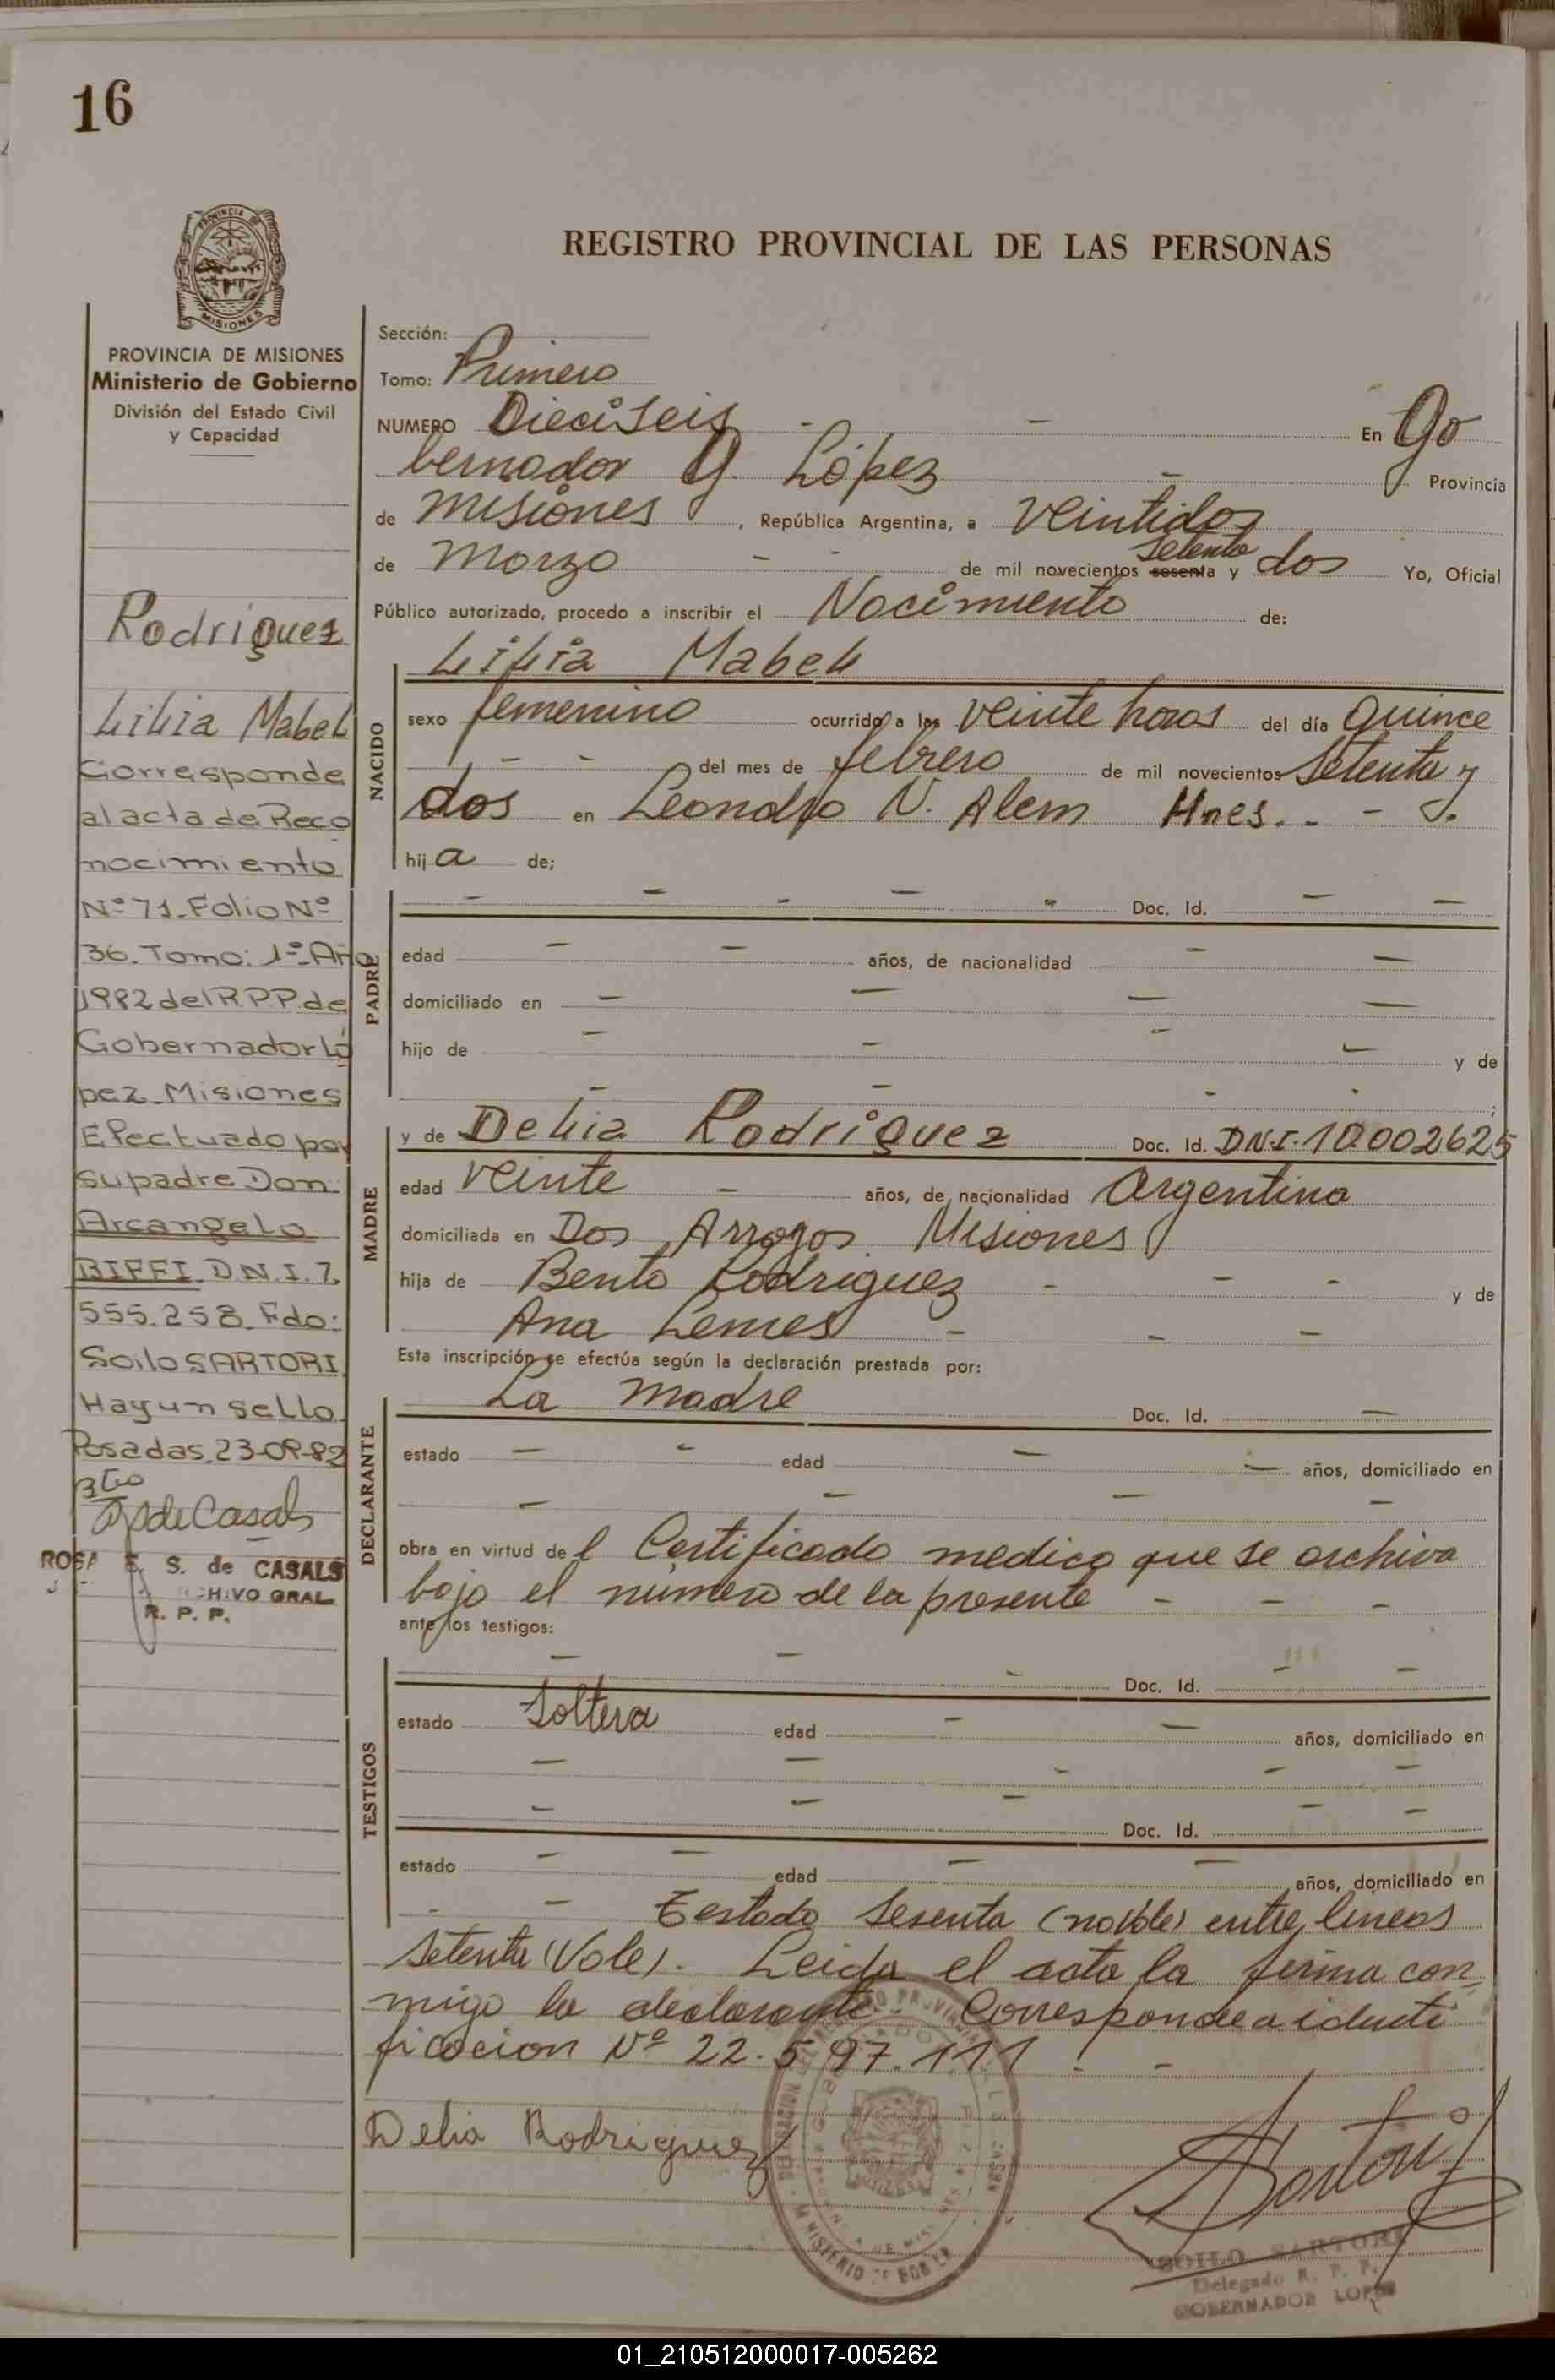 16
PROVINCIA DE
MISIONES
PROVINCIA DE MISIONES
Ministerio de Gobierno
División del Estado Civil
y Capacidad
Rodriguez
Lilia Mabel
Corresponde
al acta de Reco
nocimiento
Nº 71. Folio Nº
36. Tomo: 1º Año
1982 del R.P.P. de
Gobernador Ló
pez. Misiones
Efectuado por
su padre Don:
Arcangelo
BIFFI D.N.I. 7.
555.258. Fdo:
Soilo SARTORI
Hay un sello
Posadas, 23-09-82
de Casals
ROSA E. S. de CASALS
ARCHIVO GRAL.
R. P. P.
REGISTRO PROVINCIAL DE LAS PERSONAS
Sección:
Tomo: Primero
NUMERO Dieciseis - - En Go
bernador G. López - Provincia
de Misiones, República Argentina, a veintidos
de Marzo - - de mil novecientos sesenta setenta y dos Yo, Oficial
Público autorizado, procedo a inscribir el Nacimiento de:
NACIDO
Lilia Mabel
sexo femenino ocurrido a las veinte horas del día quince
- - del mes de febrero de mil novecientos Setenta y
dos en Leandro N. Alem Mnes. - -
hij a de;
PADRE
- - - - Doc. Id. - -
edad - - años, de nacionalidad - -
domiciliado en - - - -
hijo de - - - y de
- - - - ;
MADRE
y de Delia Rodriguez Doc. Id. D.N.I. 10.002625
edad veinte - años, de nacionalidad Argentina
domiciliada en Dos Arroyos. Misiones
hija de Bento Rodriguez - - - y de
Ana Lemes - - -
Esta inscripción se efectúa según la declaración prestada por:
DECLARANTE
La Madre Doc. Id. -
estado - - edad - - años, domiciliado en
- - - -
obra en virtud de l Certificado medico que se archiva
bajo el número de la presente - - -
ante los testigos:
TESTIGOS
- - - Doc. Id. - -
estado Soltera edad - - años, domiciliado en
- - - - -
- - - - - Doc. Id.
estado - - edad - - años, domiciliado en
- - Testado Sesenta (no Vale) entre lineas
setenta (Vale). Leida el acta la firma con
migo la declarante. Corresponde a identi
ficacion Nº 22.597.111 - -
Delia Rodriguez
Sartori
SOILO SARTORI
Delegado R. P. P.
GOBERNADOR LOPEZ
MINISTERIO DE GOBIERNO
01_210512000017-005262